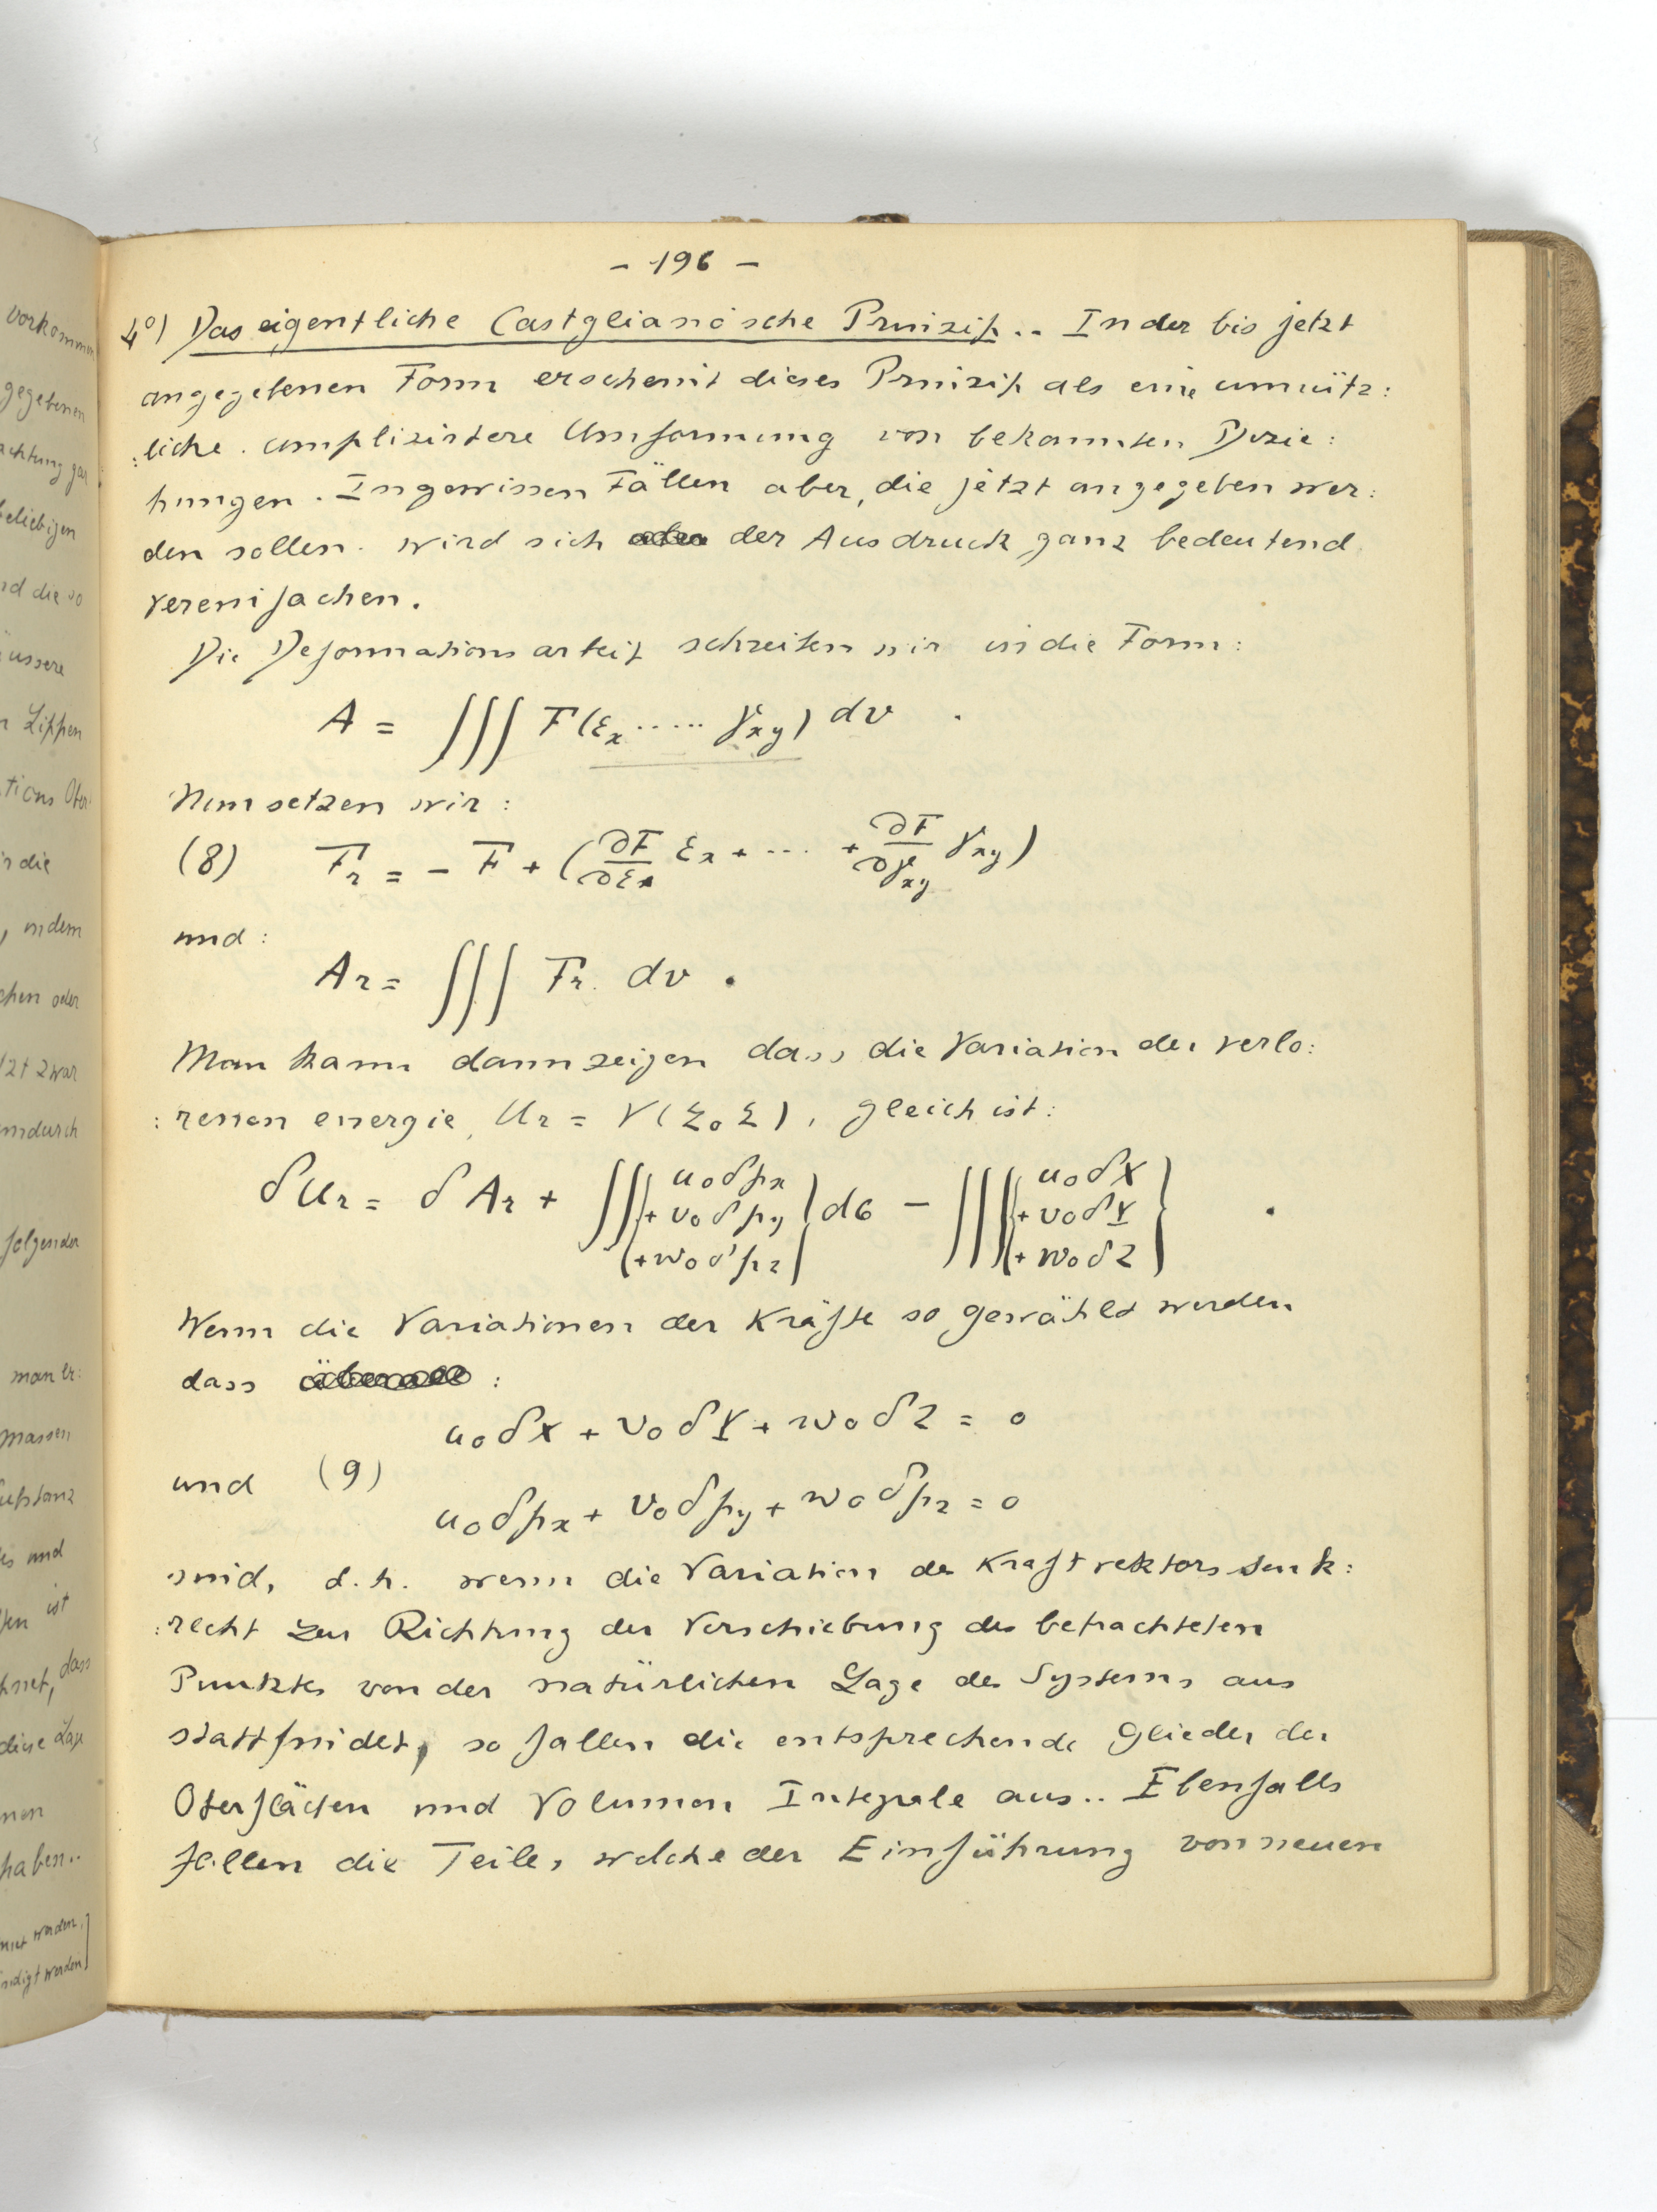 vorkommen
gegebenen
beliebigen
nd die so
äussere
n Lippen
r die
, indem
chen oder
tzt zwar
folgender
man er:
massen
Substanz
es und
ist
dass
diese Lage
haben..
werden.
ndigt werden
- 196 -
4°) Das eigentliche Castglianosche Prinzip.. In der bis jetzt
angegebenen Form erscheint dieses Prinzip als eine unnütz:
:liche. umplizirtere Umformung von bekannten Bezie:
hungen. In gewissen Fällen aber, die jetzt angegeben wer:
den sollen. wird sich aber der Ausdruck ganz bedeutend
vereinfachen.
Die Deformationsarbeit schreiben wir in die Form:
A = ∫∫∫ F(εx ..... γxy) dv .
Nun setzen wir:
(8) Fr = - F + (∂F/∂εx εx + ... + ∂F/∂γxy γxy)
und:
Ar = ∫∫∫ Fr. dv .
Man kann dann zeigen dass die Variation der verlo:
:renen energie, Ur = V(Σo Σ), gleich ist:
δUr = δAr + ∫∫{u₀δpx + v₀δpy + w₀δpz} dσ - ∫∫∫{u₀δX + v₀δY + w₀δZ} .
Wenn die Variationen der Kräfte so gewählt werden
dass überall :
u₀δX + v₀δY + w₀δZ = 0
und (9)
u₀δpx + v₀δpy + w₀δpz = 0
sind, d.h. wenn die Variation des Kraftvektors senk:
:recht zur Richtung der Verschiebung des betrachteten
Punktes von der natürlichen Lage des Systems aus
stattfindet, so fallen die entsprechende Glieder der
Oberflächen und Volumen Integrale aus.. Ebenfalls
fallen die Teile, welche der Einführung von neuen